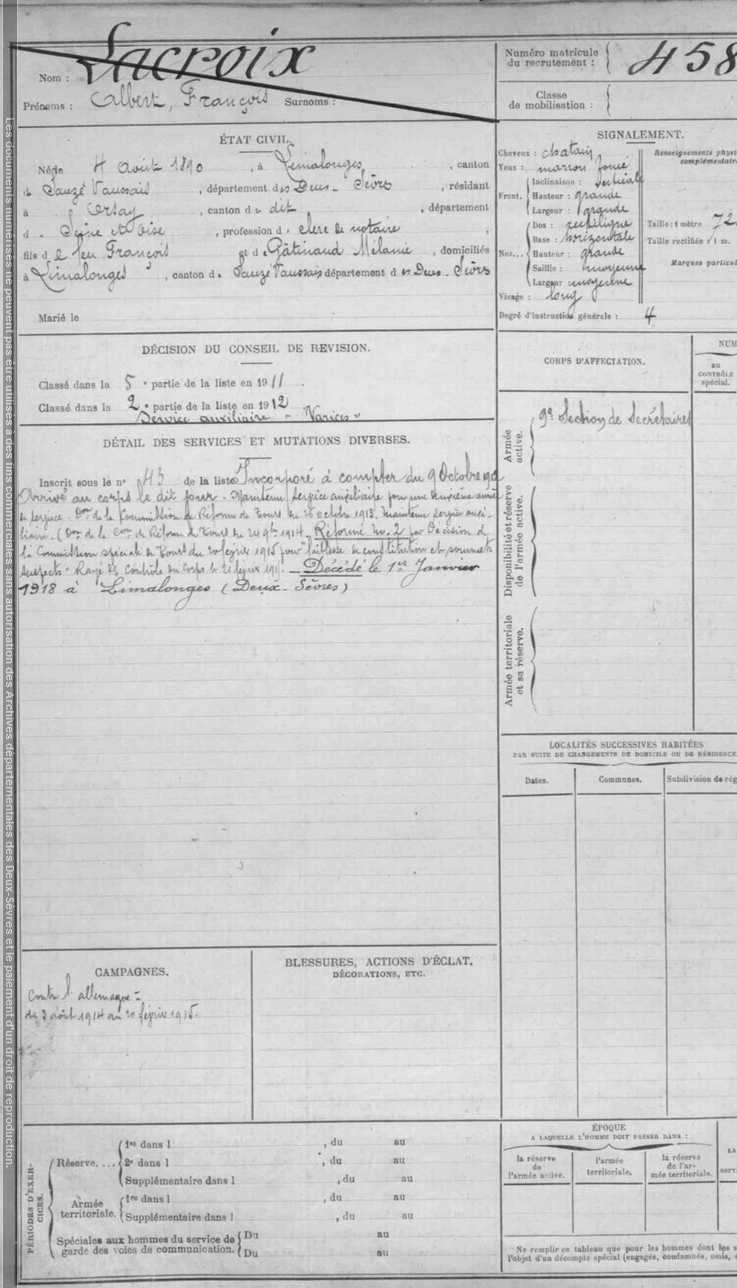 Les documents numérisés ne peuvent pas être utilisés à des fins commerciales sans autorisation des Archives départementales des Deux-Sèvres et le paiement d'un droit de reproduction.
Nom : Lacroix
Prénoms : Albert, François Surnoms :
Numéro matricule du recrutement : 458
Classe de mobilisation :
ÉTAT CIVIL.
Né le 4 Août 1890, à Limalonges, canton
d Sauzé Vaussais, département des Deux-Sèvres, résidant
à Orsay, canton du dit, département
d Seine et Oise, profession d clerc de notaire
fils de feu François et de Gâtinaud Mélanie, domiciliés
à Limalonges, canton de Sauzé Vaussais département des Deux-Sèvres
Marié le
SIGNALEMENT.
Cheveux : chatain
Yeux : marron foncé
Front. Inclinaison : verticale
Hauteur : grande
Largeur : grande
Nez... Dos : rectiligne
Base : horizontale
Hauteur : grande
Saillie : moyenne
Largeur moyenne
Visage : long
Degré d'instruction générale : 4
Renseignements physi
complémentaire
Taille : 1 mètre 72
Taille rectifiée : 1 m.
Marques particul
DÉCISION DU CONSEIL DE REVISION.
Classé dans la 5e partie de la liste en 1911
Classé dans la 2e partie de la liste en 1912
Service auxiliaire - Varices
DÉTAIL DES SERVICES ET MUTATIONS DIVERSES.
Inscrit sous le n° 43 de la liste Incorporé à compter du 9 Octobre
Arrivé au corps le dit jour. Maintenu service auxiliaire
de la Commission de Réforme de Tours
Réformé No. 2 par Décision d
la Commission spéciale de Tours du 20 février 1915 pour faiblesse de constitution et sommets
suspects. Rayé des contrôles du corps le Décédé le 1er Janvier
1918 à Limalonges (Deux-Sèvres)
CORPS D'AFFECTATION.
NUM
AU CONTRÔLE spécial.
Armée active.
9e Section de Secrétaires
Disponibilité et réserve de l'armée active.
Armée territoriale et sa réserve.
LOCALITÉS SUCCESSIVES HABITÉES
PAR SUITE DE CHANGEMENTS DE DOMICILE OU DE RÉSIDENCE
Dates. Communes. Subdivision de rég
CAMPAGNES.
Contre l'allemagne :
du 3 août 1914 au 20 février 1915.
BLESSURES, ACTIONS D'ÉCLAT,
DÉCORATIONS, ETC.
PÉRIODES D'EXERCICES.
Réserve.... 1re dans l , du au
2e dans l , du au
Supplémentaire dans l , du au
Armée territoriale. 1re dans l , du au
Supplémentaire dans l , du au
Spéciales aux hommes du service de garde des voies de communication. Du au
Du au
ÉPOQUE
A LAQUELLE L'HOMME DOIT PASSER DANS :
la réserve de l'armée active.
l'armée territoriale.
la réserve de l'armée territoriale.
Ne remplir ce tableau que pour les hommes dont les s
l'objet d'un décompte spécial (engagés, condamnés, omis,